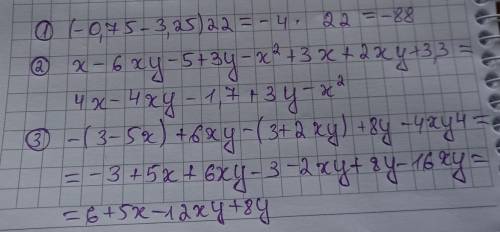 ① (-0,75-3,25)22=-4· 22=-88
② x-6xy-5+3y-x²+3x+2xy+3,3=
4x-4xy-1,7+3y-x²
③ -(3-5x)+6xy-(3+2xy)+8y-4xy4=
=-3+5x+6xy-3-2xy+8y-16xy=
=6+5x-12xy+8y